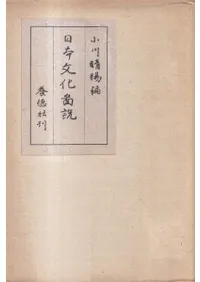 小川晴暘編
日本文化圖説
養德社刊